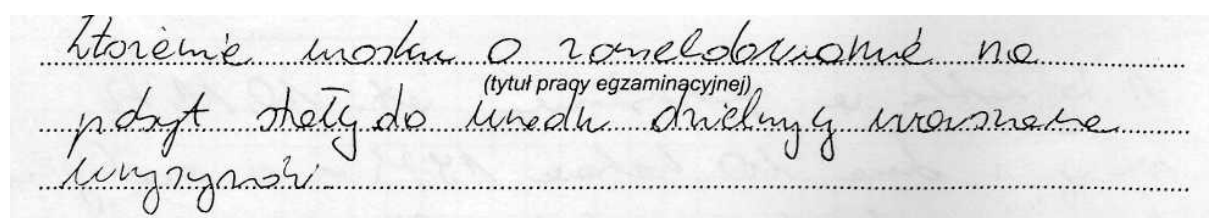 Złożenie wniosku o zameldowanie na
(tytuł pracy egzaminacyjnej)
pobyt stały do urzędu dzielnicy